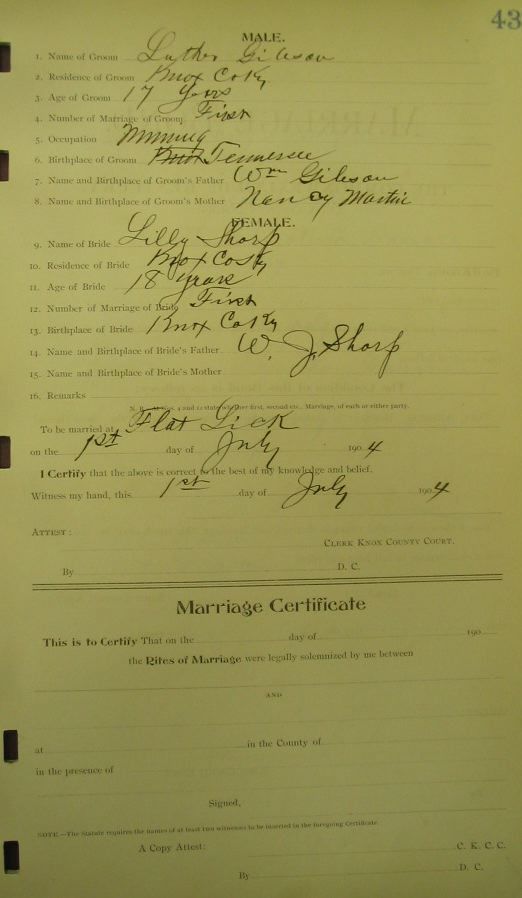 43
MALE.
1. Name of Groom Luther Gibson
2. Residence of Groom Knox Co Ky
3. Age of Groom 17 years
4. Number of Marriage of Groom First
5. Occupation Mining
6. Birthplace of Groom Tennessee
7. Name and Birthplace of Groom's Father Wm Gibson
8. Name and Birthplace of Groom's Mother Nancy Martin
FEMALE.
9. Name of Bride Lilly Sharp
10. Residence of Bride Knox Co Ky
11. Age of Bride 18 years
12. Number of Marriage of Bride First
13. Birthplace of Bride Knox Co Ky
14. Name and Birthplace of Bride's Father W. J. Sharp
15. Name and Birthplace of Bride's Mother
16. Remarks
N. B.—At Nos. 4 and 12 state whether first, second etc., Marriage, of each or either party.
To be married at Flat Lick
on the 1st day of July 1904
I Certify that the above is correct to the best of my knowledge and belief.
Witness my hand, this 1st day of July 1904
ATTEST:
CLERK KNOX COUNTY COURT.
By D. C.
Marriage Certificate
This is to Certify That on the day of 190
the Rites of Marriage were legally solemnized by me between
AND
at in the County of
in the presence of
Signed,
NOTE.—The Statute requires the names of at least two witnesses to be inserted in the foregoing Certificate.
A Copy Attest: C. K. C. C.
By D. C.